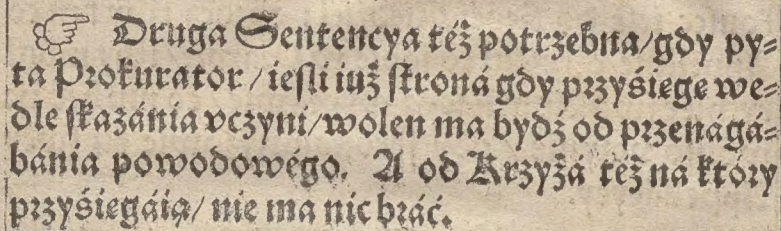 ☞ Druga Sentencya też potrzebna/ gdy py⸗
ta Prokurator/ ieſli iuż ſtroná gdy przyśiege we⸗
dle ſkazánia vczyni/ wolen ma bydź od przenágá⸗
bánia powodowégo. A od Krzyżá też ná który
przyśiegáią/ nie ma nic bráć.